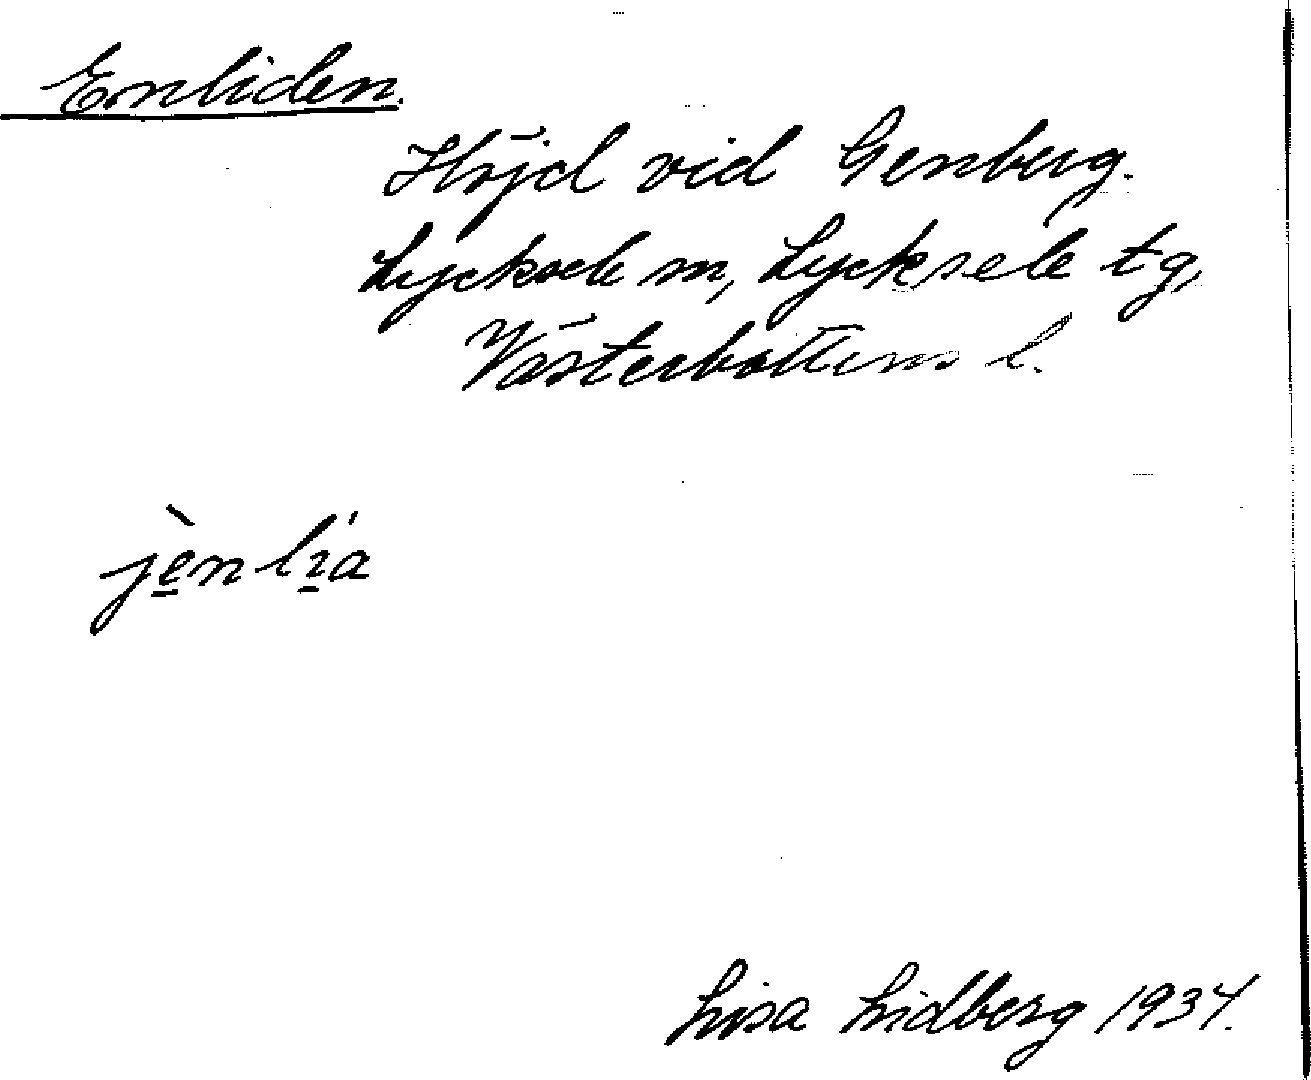 Enliden.
Höjd vid Genberg.
Lycksele sn, Lycksele tg,
Västerbottens l.
jènlı̱́a
Lisa Lidberg 1934.